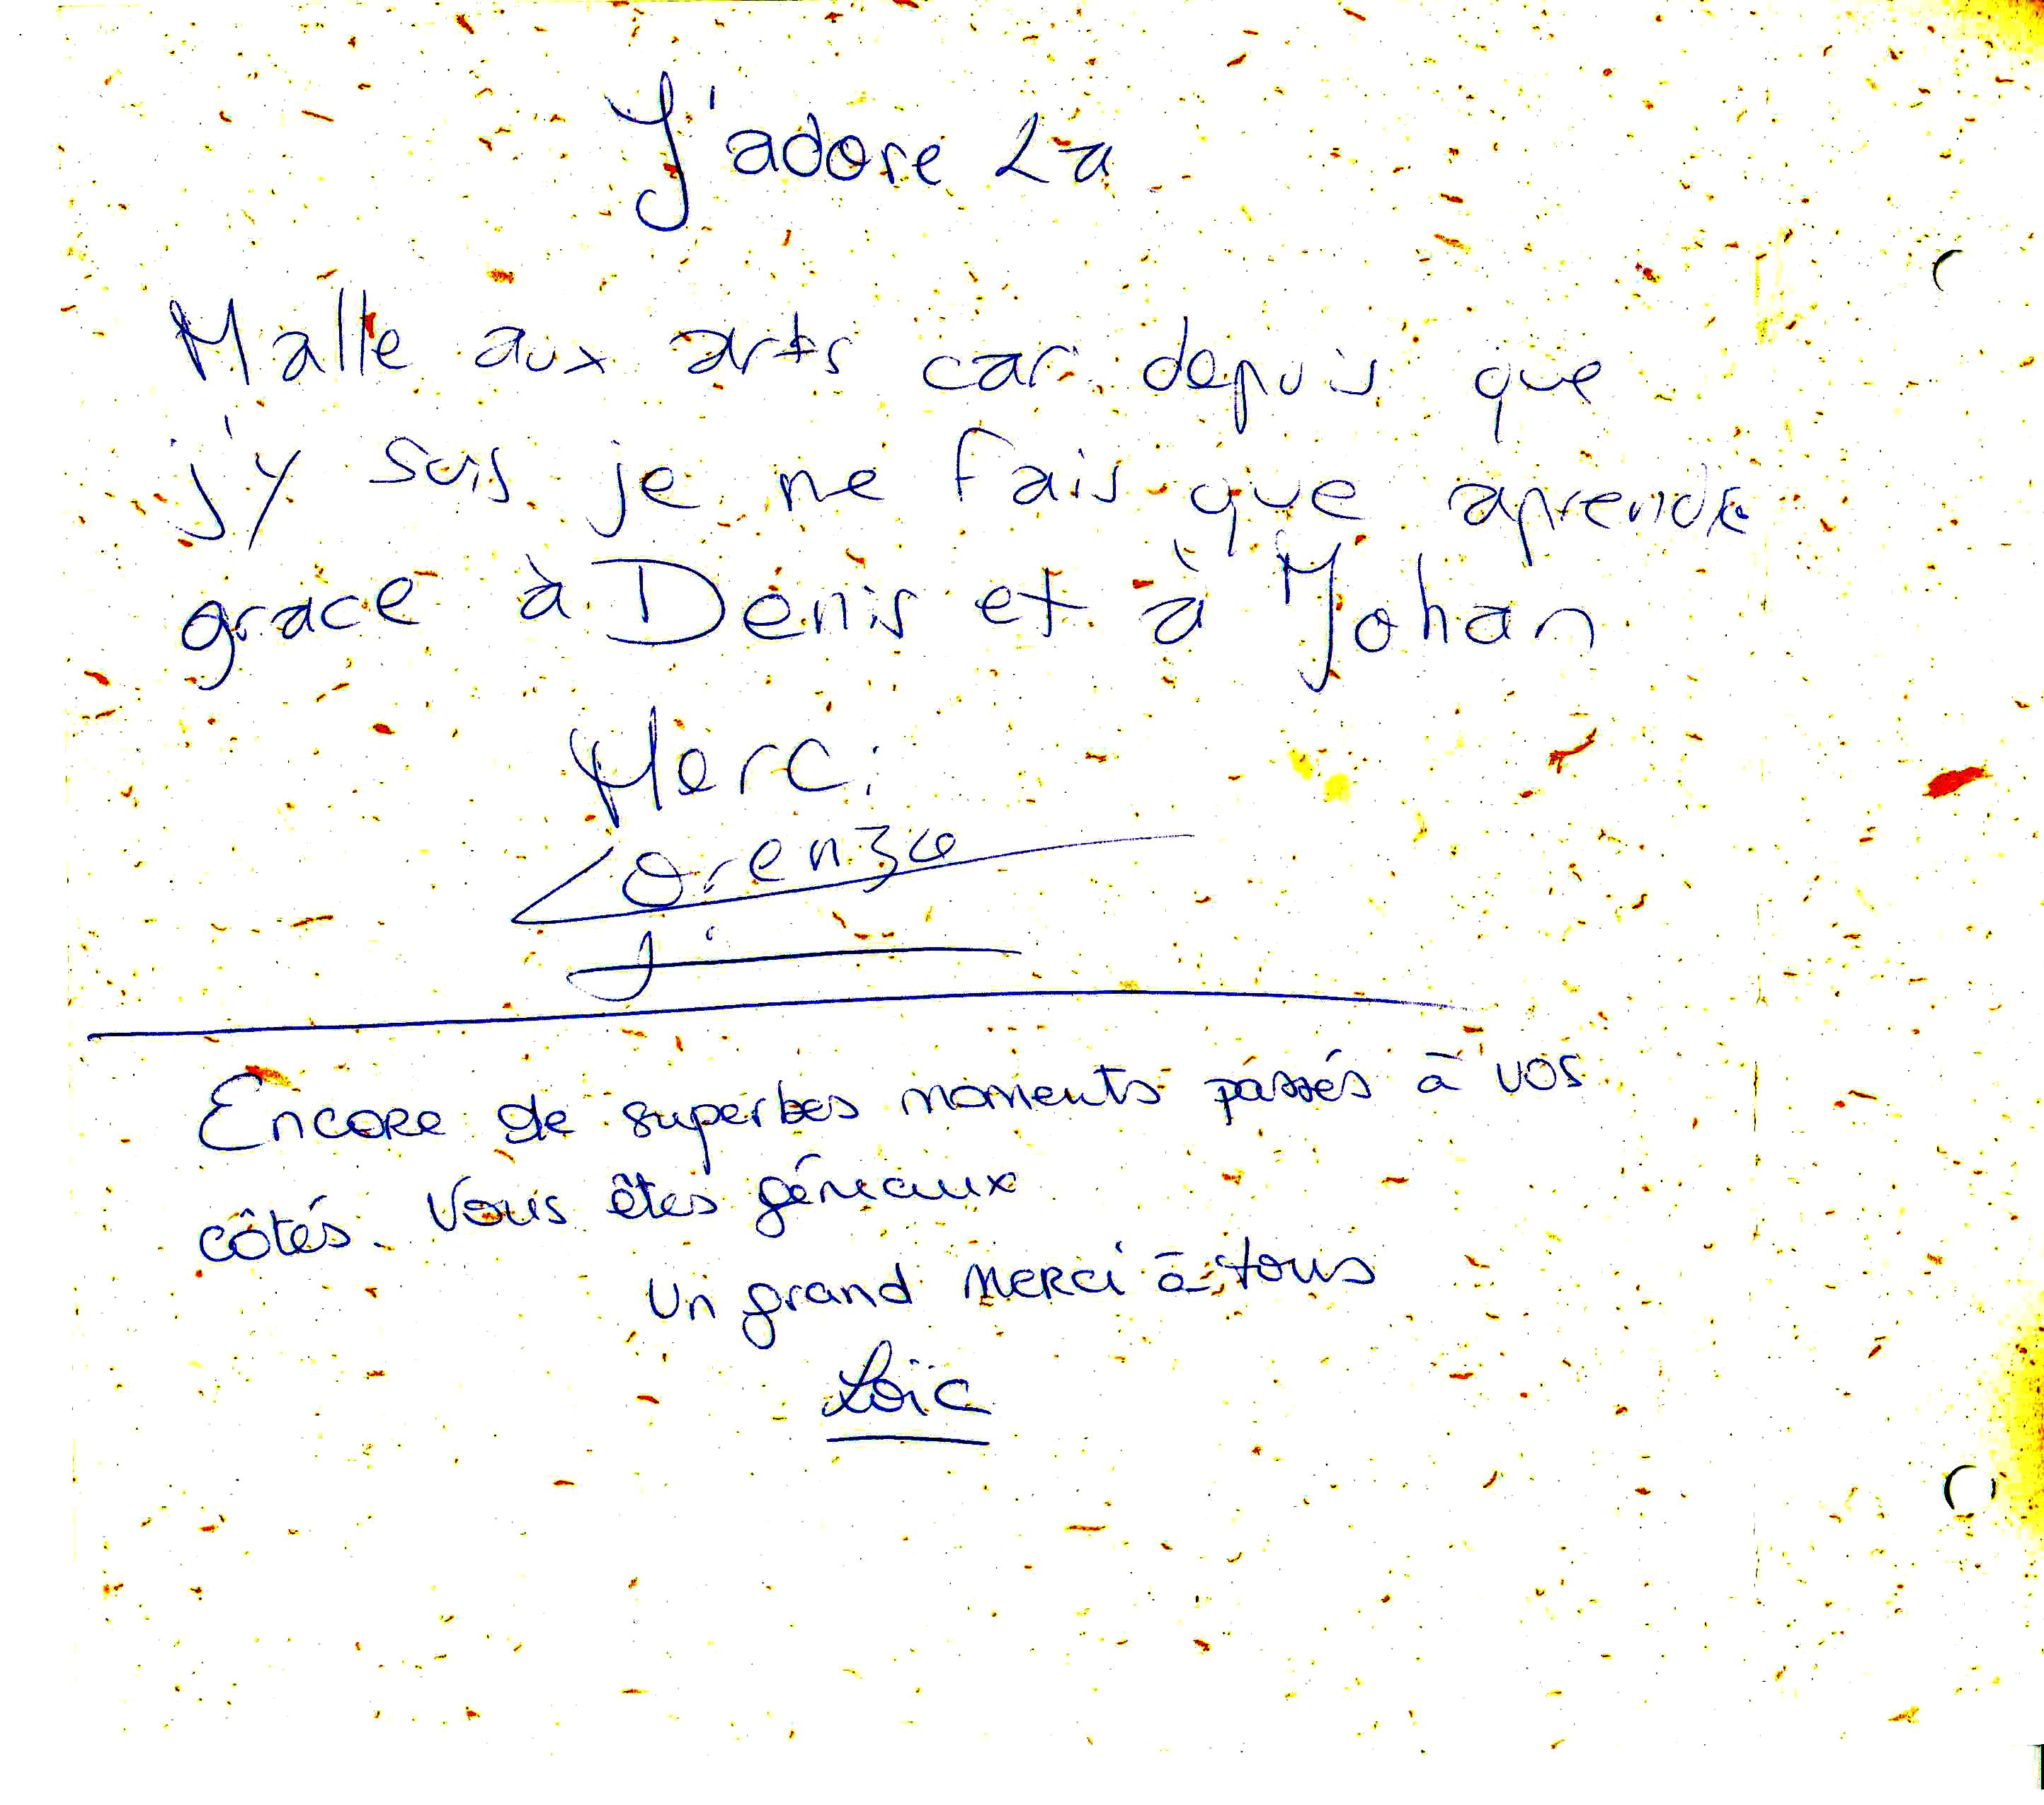 J'adore La
Malle aux arts car depuis que
j'y suis je ne fais que aprendre
grace à Denis et à Yohan
Merci
Lorenzo
Encore de superbes moments passés à vos
côtés. Vous êtes géniaux
Un grand merci à tous
Loïc